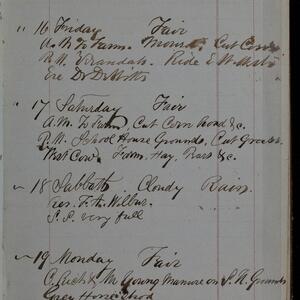 " 16 Friday Fair
A.M. To Farm. Cut Corn
P.M. Verandah. Ride E.
Eve Dr De Motts
" 17 Saturday Fair
A.M. To Farm, Cut Corn Road &c.
P.M. School House Grounds, Cut Grass
Cow. From, Hay, &c.
" 18 Sabbath Cloudy Rain
Pres. F. A. Wilbur.
S.S. very full
" 19 Monday Fair
C. & Mr Young Manure on S.H. Grounds
Grey Horse Shod